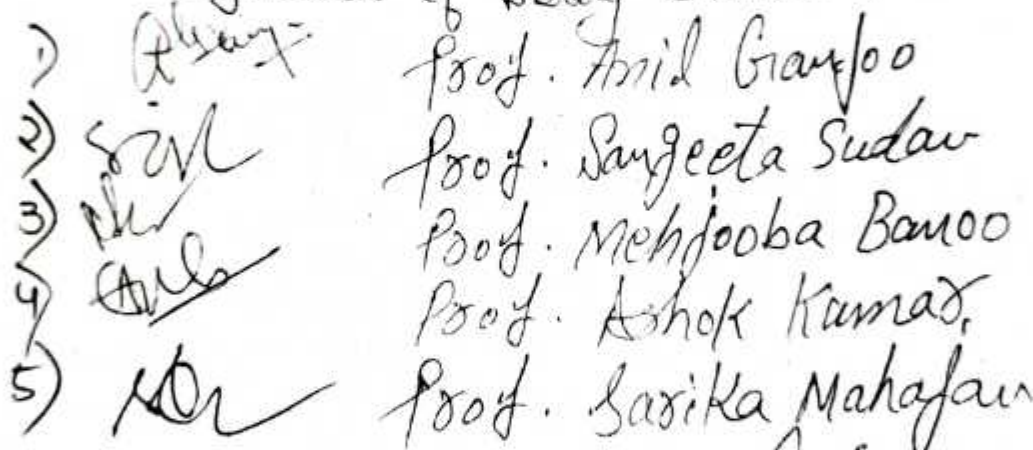 of
1) Prof. Anil Ganjoo
2) Prof. Sangeeta Sudan
3) Prof. Mehjooba Banoo
4) Prof. Ashok Kumar,
5) Prof. Sarika Mahajan